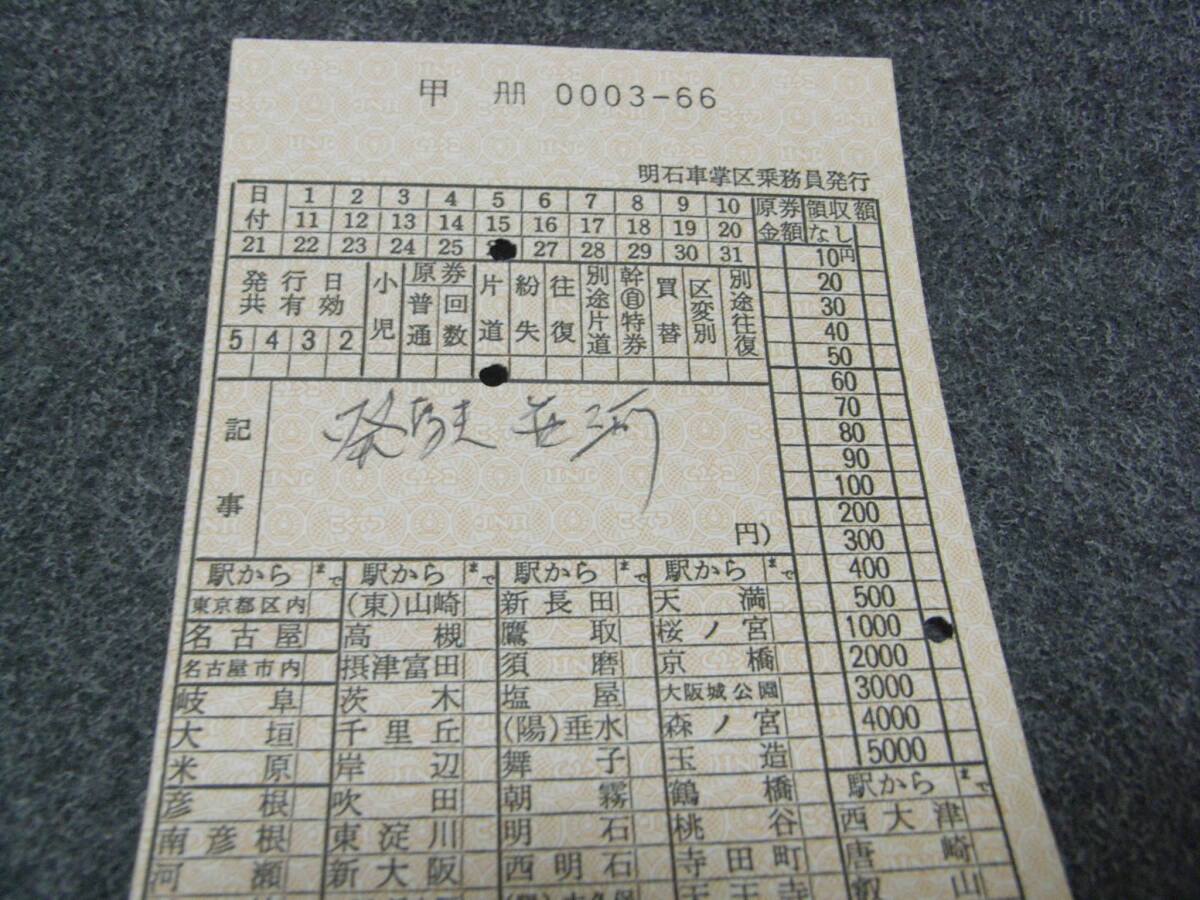 甲 冊 0003-66
明石車掌区乗務員発行
日付 1 2 3 4 5 6 7 8 9 10 原券金額 領収額
11 12 13 14 15 16 17 18 19 20 なし
21 22 23 24 25 27 28 29 30 31 10円
20
30
40
50
発行日共有効 小児 原券 普通 回数 片道 紛失 往復 別途片道 幹自特券 買替 区変別 別途往復
5 4 3 2
60
70
80
90
100
200
300
記事
円)
400
500
1000
2000
3000
4000
5000
駅から まで 駅から まで 駅から まで 駅から まで
東京都区内 (東)山崎 新長田 天満
名古屋 高槻 鷹取 桜ノ宮
名古屋市内 摂津富田 須磨 京橋
岐阜 茨木 塩屋 大阪城公園
大垣 千里丘 (陽)垂水 森ノ宮
米原 岸辺 舞子 玉造 駅から まで
彦根 吹田 朝霧 鶴橋 西大津
南彦根 東淀川 明石 桃谷 唐崎
河瀬 新大阪 西明石 寺田町 叡山
天王寺